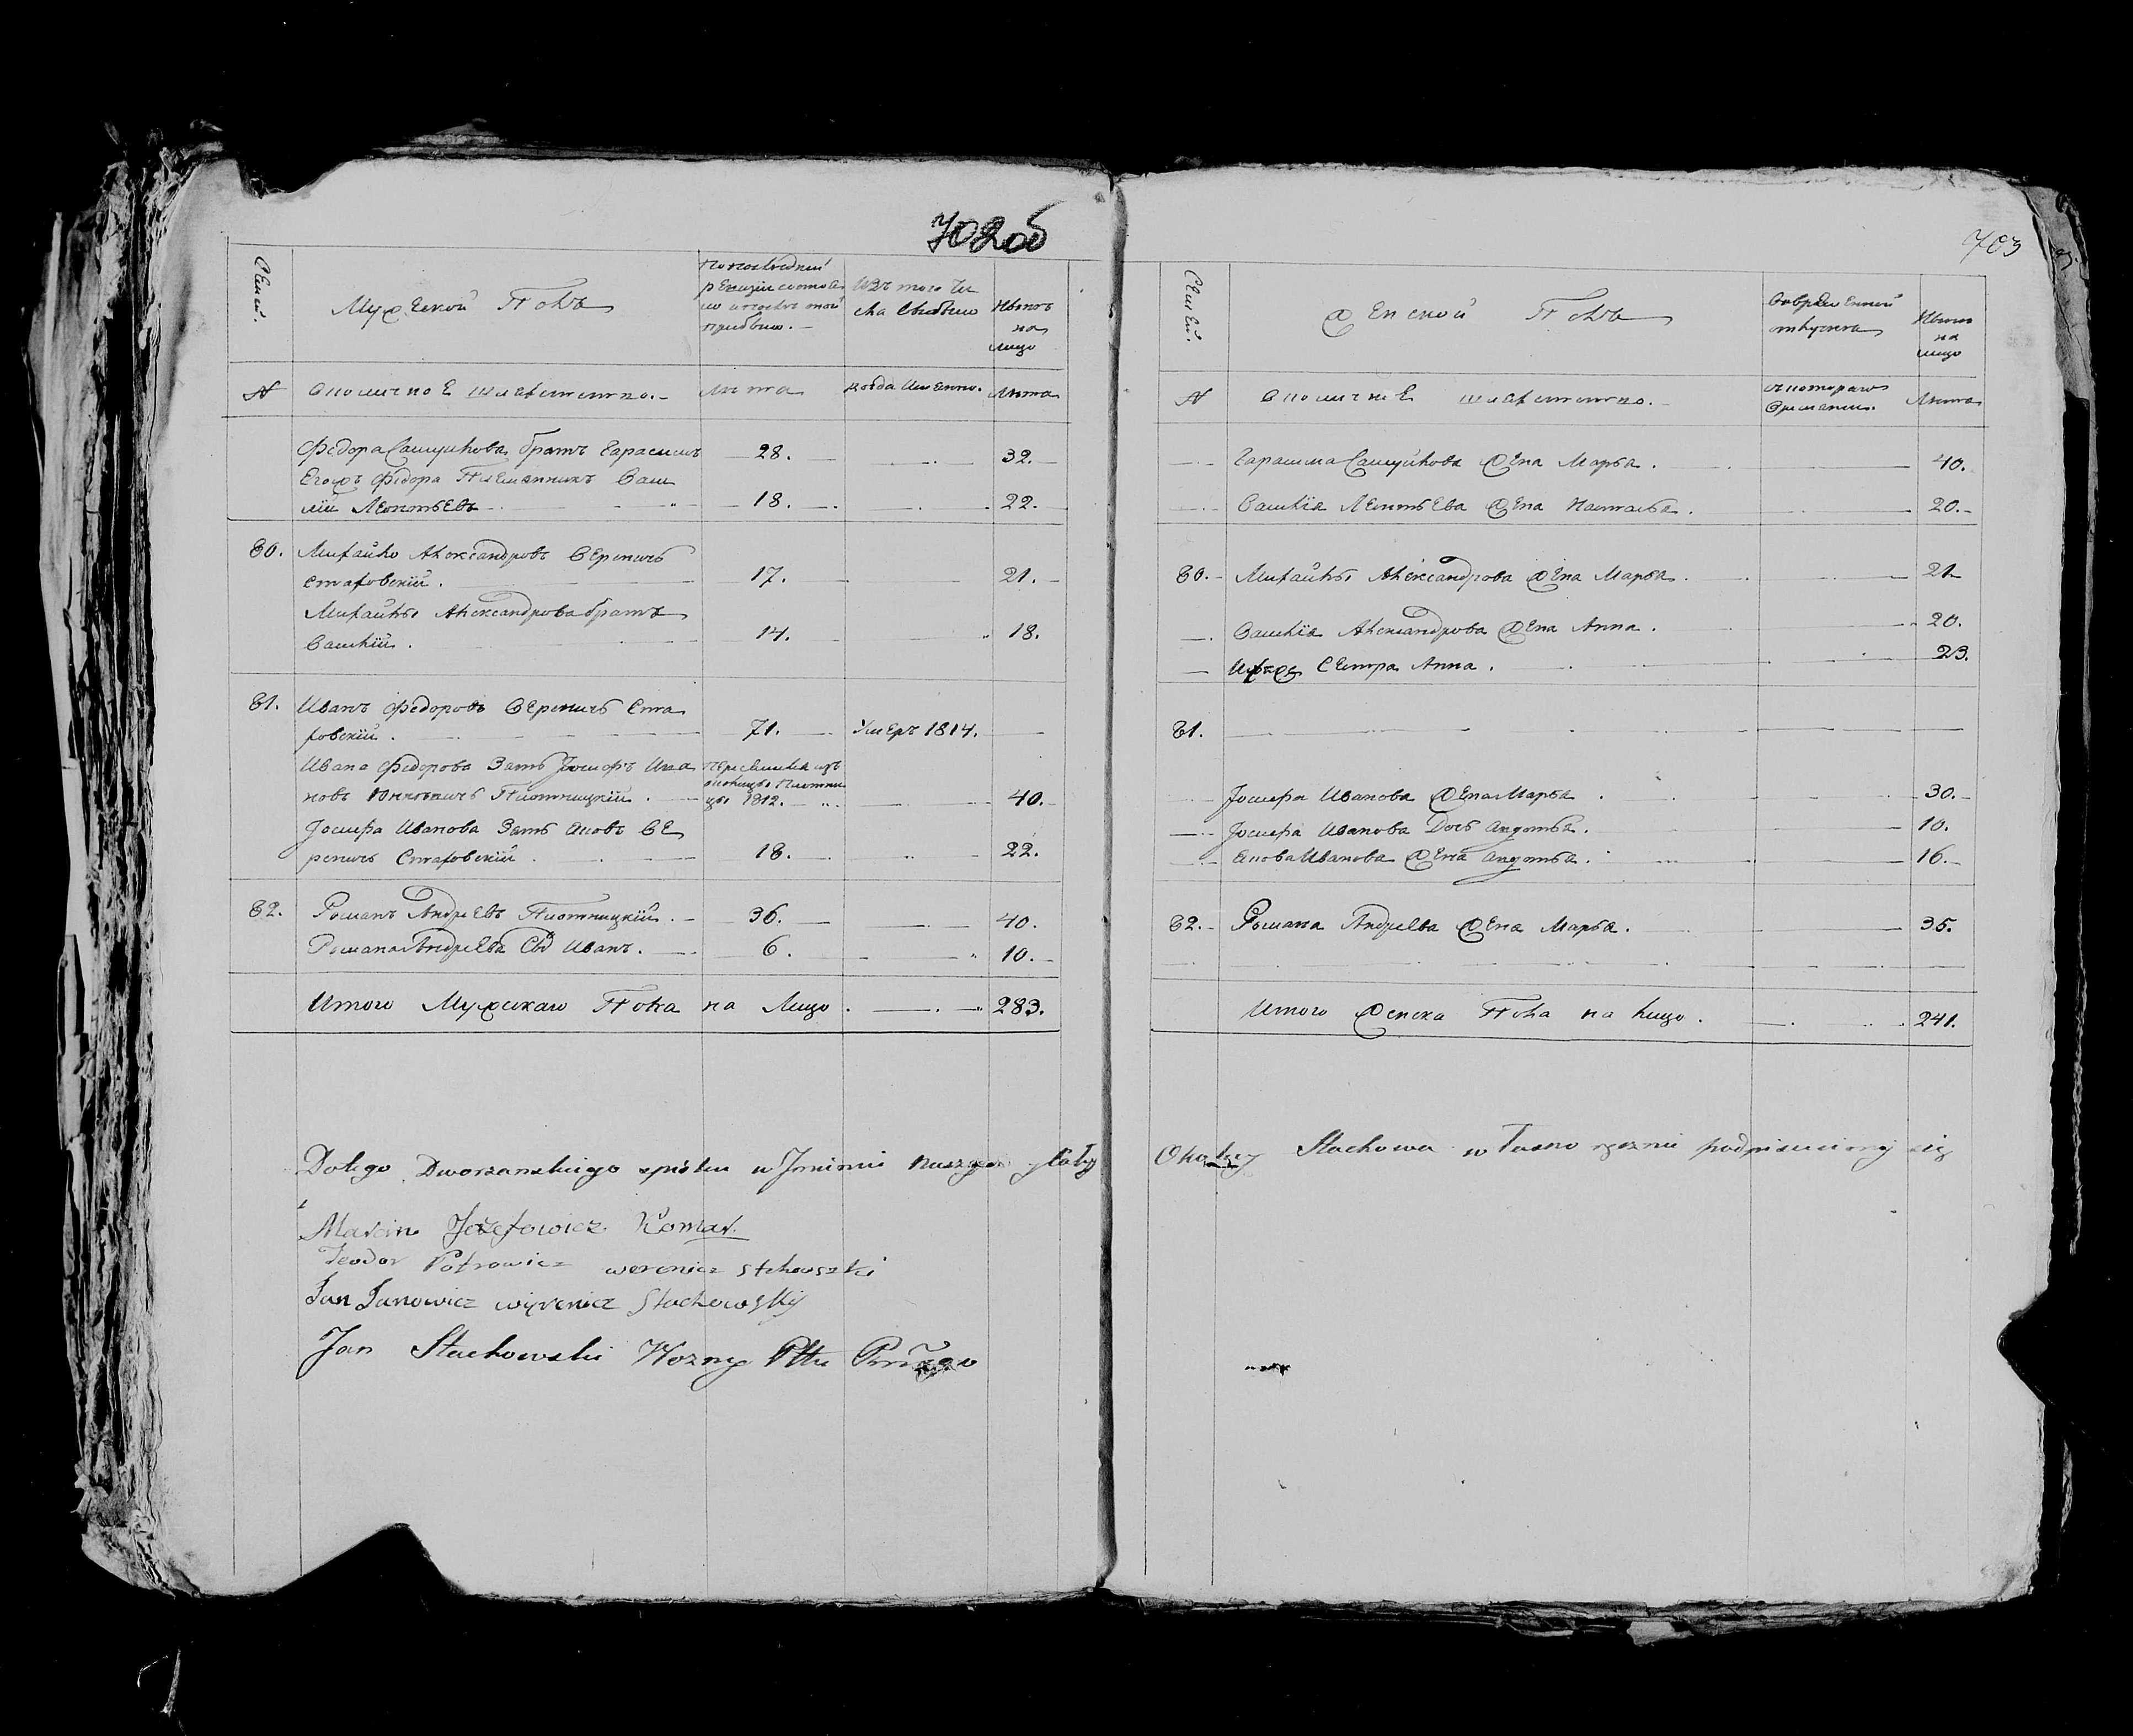 702об
Семей.
Мужеской Полъ
По последней
ревизіи состоя
ло и после той
прибыло.
Изъ того Чи
сла выбыло
Ныне
на
лицо
№
Околичное шляхетство.
Лета
когда имянно.
Лета
Федора Самуйлова братъ Гарасимъ 28. 32.
Его жъ Федора Племянникъ Васи
лій Леонтьевъ 18. 22.
60. Михайло Александровъ Вереничъ
Стаховскій. 17. 21.
Михайлы Александрова братъ
Василій. 14. 18.
61. Иванъ Федоровъ Вереничъ Ста
ховскій. 71. Умеръ 1814.
Ивана Федорова Зять Іосифъ Ива
новъ Плотницкій. 1812. 40.
Іосифа Иванова Зять Ве
реничъ Стаховскій 18. 22.
62. Романъ Андреевъ Плотницкій. 36. 40.
Романа Андреева Сынъ Иванъ. 6. 10.
Итого Мужскаго Пола на Лицо. 283.
Do tego Dworzanskiego spisku w Jmieniu naszym y całey
Marcin Jozefowicz Komar.
Teodor Potrowicz werenicz Stchowszki
Jan Janowicz wyrenicz Stachowskij
Jan Stachowski Wozny Pttu
703
Семей.
Женской Полъ
Во временной
отлучке
Ныне
на
лицо
№
Околичное шляхетство.
съ котораго
времяни.
Лета
Гарасима Самуйлова жена Марья. 40.
Василія Леонтьева жена Наталья. 20.
60. Михайлы Александрова жена Марья. 21.
Василія Александрова жена Анна. 20.
Ихъ же Сестра Анна. 23.
61.
Іосифа Иванова жена Марья. 30.
Іосифа Иванова Дочь Андотья. 10.
Иванова жена Андотья. 16.
62. Романа Андреева жена Марья. 35.
Итого женска Пола на лицо. 241.
Okolicy Stachowa własno ręcznie podpisuiemy się